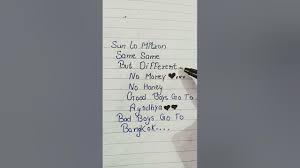 Sun Lo MPzon
Same Same
But Different..
No Money 🖤...
No Honey
Good Boys Go To
Ayodhya 🖤🖤
Bad Boys Go To
Bangkok....